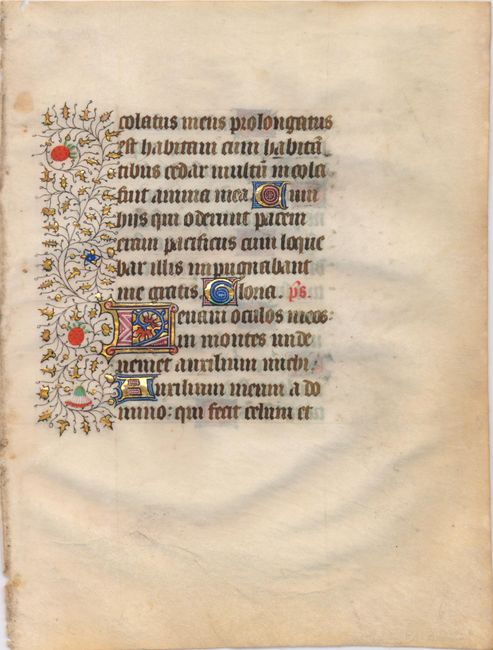 colatus meus prolongatus
est habitaui cum habitā
tibus cedar multū incola
fuit anima mea. Cum
hijs qui oderunt pacem
eram pacificus cum loque
bar illis impugnabant
me gratis. Gloria. ps.
Leuaui oculos meos:
in montes unde
ueniet auxilium michi.
Auxilium meum a do
mino: qui fecit celum et